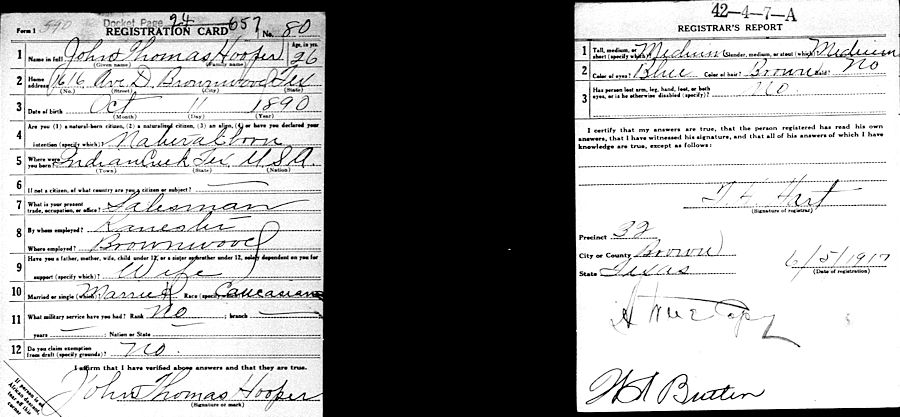 590 Docket Page 94 657
Form 1 REGISTRATION CARD No. 80
1 Name in full John Thomas Hooper Age, in yrs. 26
(Given name) (Family name)
2 Home address 1616 Ave D. Brownwood Tex
(No.) (Street) (City) (State)
3 Date of birth Oct 11 1890
(Month) (Day) (Year)
4 Are you (1) a natural-born citizen, (2) a naturalized citizen, (3) an alien, (4) or have you declared your
intention (specify which)? Natural born
5 Where were you born? Indian Creek Tex U.S.A.
(Town) (State) (Nation)
6 If not a citizen, of what country are you a citizen or subject?
7 What is your present trade, occupation, or office? Salesman
8 By whom employed?
Where employed? Brownwood
9 Have you a father, mother, wife, child under 12, or a sister or brother under 12, solely dependent on you for
support (specify which)? Wife
10 Married or single (which)? Married Race (specify which)? Caucasian
11 What military service have you had? Rank No ; branch
years ; Nation or State
12 Do you claim exemption from draft (specify grounds)? No.
I affirm that I have verified above answers and that they are true.
John Thomas Hooper
(Signature or mark)
If person is of African descent, tear off this corner
42-4-7-A
REGISTRAR'S REPORT
1 Tall, medium, or short (specify which)? Medium Slender, medium, or stout (which)? Medium
2 Color of eyes? Blue Color of hair? Brown Bald? No
3 Has person lost arm, leg, hand, foot, or both eyes, or is he otherwise disabled (specify)? No.
I certify that my answers are true, that the person registered has read his own
answers, that I have witnessed his signature, and that all of his answers of which I have
knowledge are true, except as follows:
Hart
(Signature of registrar)
Precinct 32
City or County Brown
State Texas 6/5/1917
(Date of registration)
A true Copy